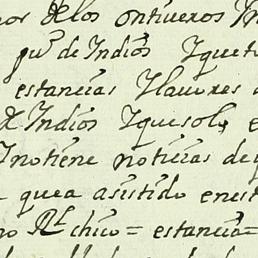 nos de los ontiueros
de Indios Y que tu
estancias Y lauores
de Indios Y que solo e
Y no tiene noticias de
que a asistido en est
chico = estancia =